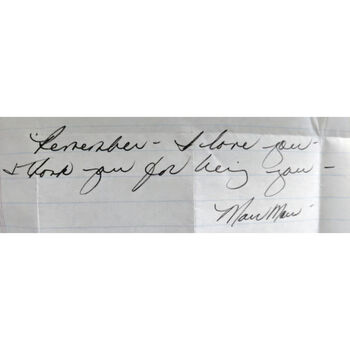 "Remember - I love you -
& thank you for being you -
Maw Maw